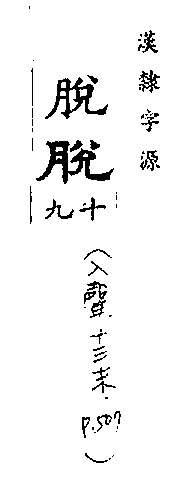 漢隸字源
脫
脫
十九
(入聲十三末.
P.507)